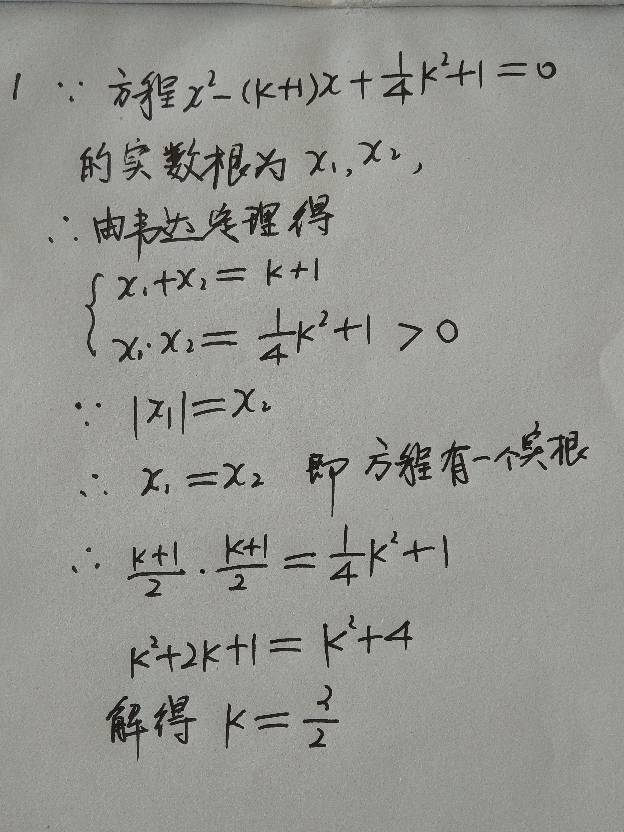 1 ∵ 方程x²-(k+1)x+1/4k²+1=0
的实数根为 x₁,x₂,
∴由韦达定理得
{x₁+x₂=k+1
x₁·x₂=1/4k²+1>0
∵ |x₁|=x₂
∴ x₁=x₂ 即方程有一个实根
∴ (k+1)/2·(k+1)/2=1/4k²+1
k²+2k+1=k²+4
解得 k=3/2